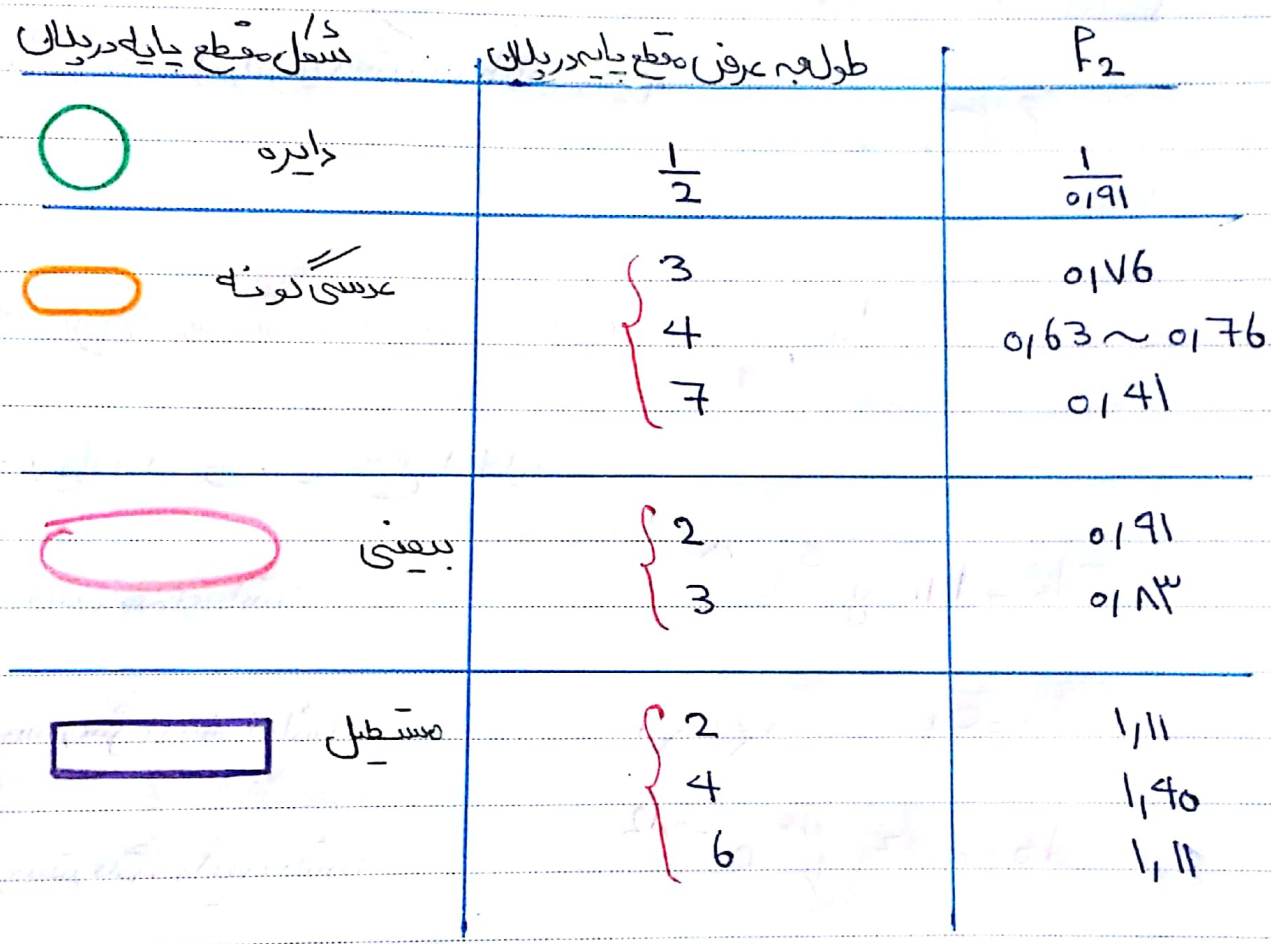 شکل مقطع پایه در پلان	طول به عرض مقطع پایه در پلان	P2
دایره	1/2	1/0,91
عدسی گونه	3	0,۷6
4	0,63 ~ 0,76
7	0,41
بیضی	2	0,91
3	0,۸۳
مستطیل	2	1,11
4	1,40
6	1,11